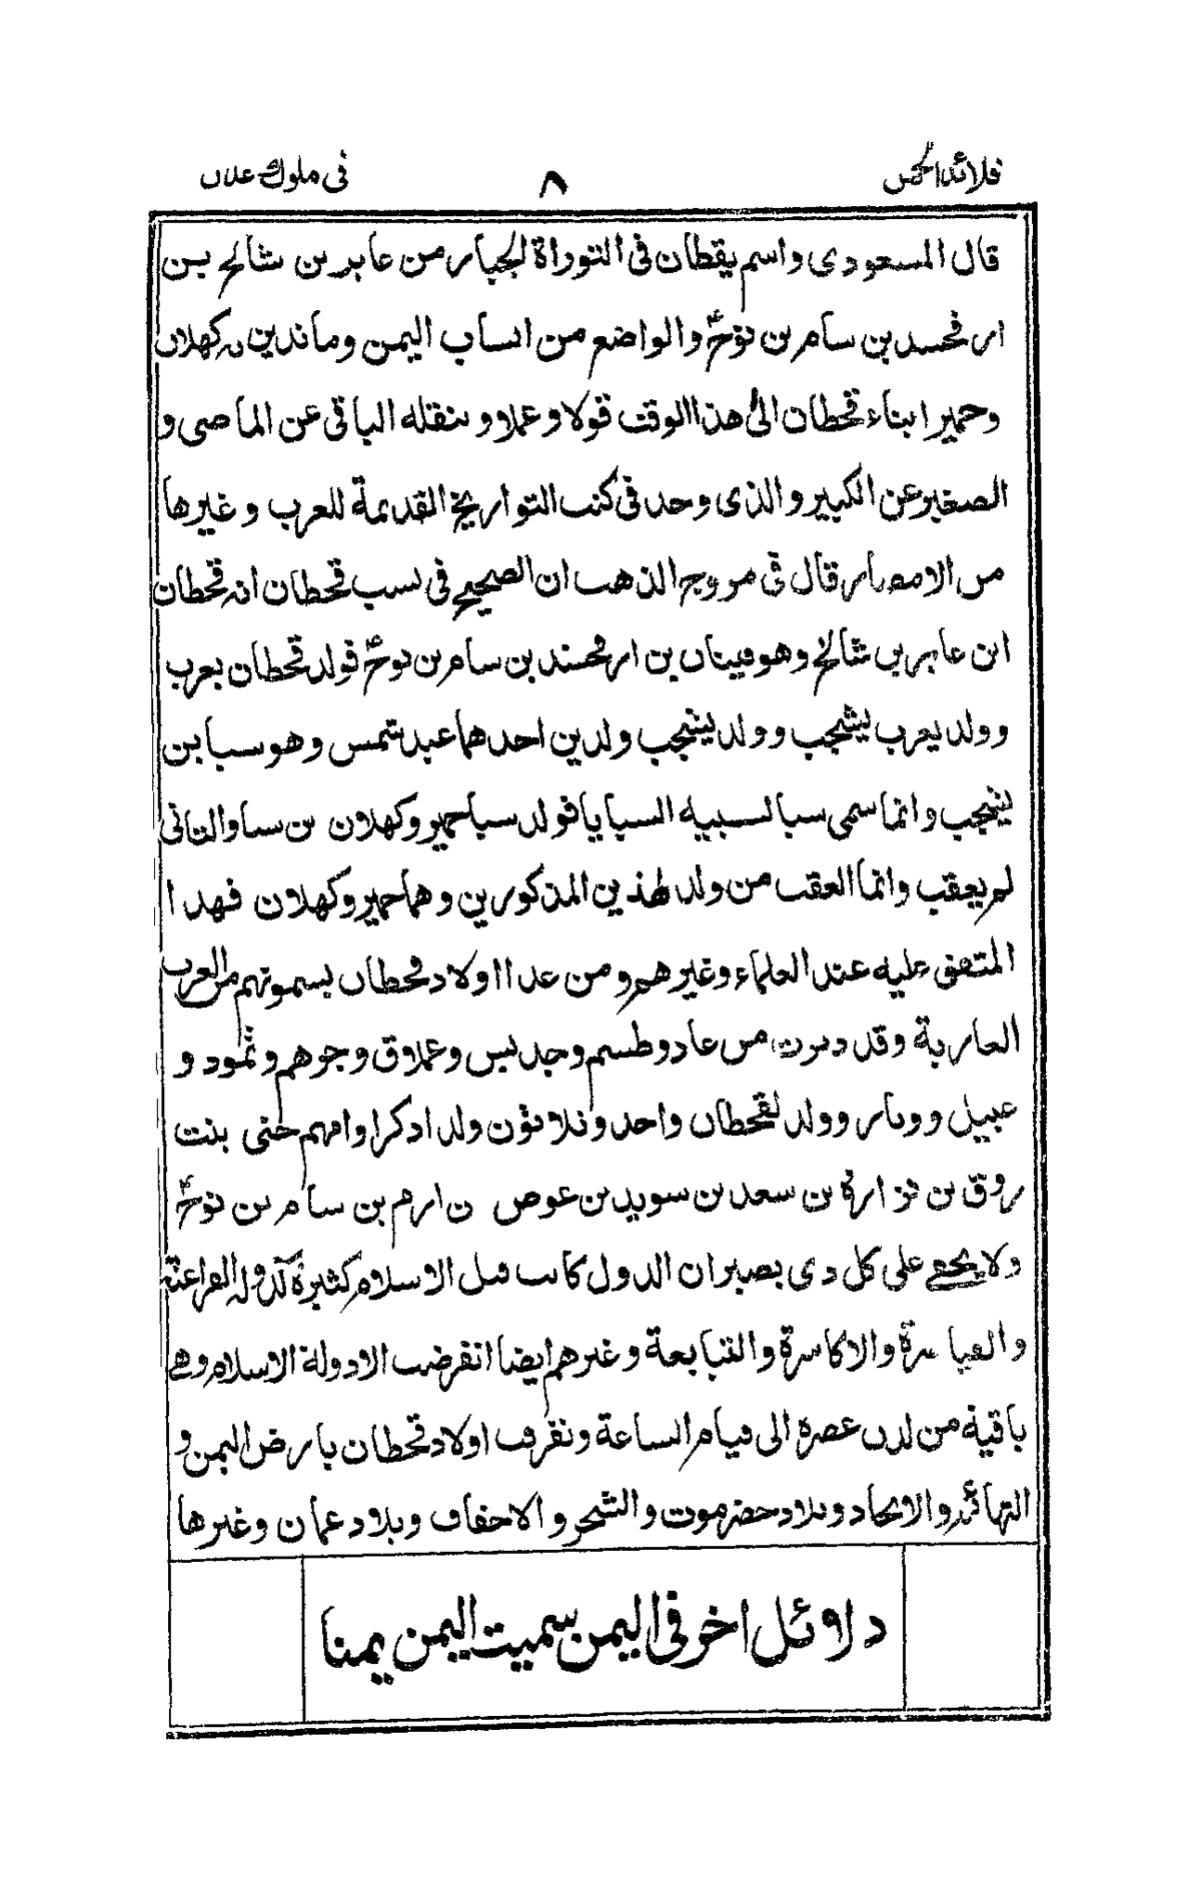 قلائد الجمن
٨
فى ملوك علان
قال المسعودى واسم يقطان فى التوراة الجبار من عابر بن شالخ بن
ارفحسد بن سام بن نوحؑ والواضع من انساب اليمن وما تدين به كهلان
وحمير ابناء قحطان الى هذا الوقت قولا وعملا وينقله الباقى عن الماضى و
الصغير عن الكبير والذى وجد فى كتب التواريخ القديمة للعرب وغيرها
من الامصار قال فى مروج الذهب ان الصحيح فى نسب قحطان انه قحطان
ابن عابر بن شالخ وهو قينان بن ارفحسد بن سام بن نوحؑ فولد قحطان يعرب
وولد يعرب يشجب وولد يشجب ولدين احدهما عبد شمس وهو سبا بن
يشجب وانما سمى سبا لسبيه السبايا فولد سبا حمير وكهلان بن سبا والثانى
لم يعقب وانما العقب من ولد لهذين المذكورين وهما حمير وكهلان فهدا
المتفق عليه عند العلماء وغيرهم ومن عدا اولاد قحطان يسمونهم من العرب
العاربة وقد دثرت من عاد وطسم وجديس وعملاق وجوهم وثمود و
عبيل ووبار وولد لقحطان واحد وثلاثون ولدا دكرا وامهم حنى بنت
روق بن فزارة بن سعد بن سويد بن عوص بن ارم بن سام بن نوحؑ
ولا يخفى على كل دى بصير ان الدول كانت قبل الاسلام كثيرة كدولة الفراعنة
والقياسرة والاكاسرة والتبابعة وغيرهم ايضا انقرضت الا دولة الاسلام وهى
باقية من لدن عصره الى قيام الساعة وتفرقت اولاد قحطان بارض اليمن و
التهائم والانجاد وبلاد حضرموت والشحر والاحقاف وبلاد عمان وغيرها
دلاوئل اخر فى اليمن سميت اليمن يمنا